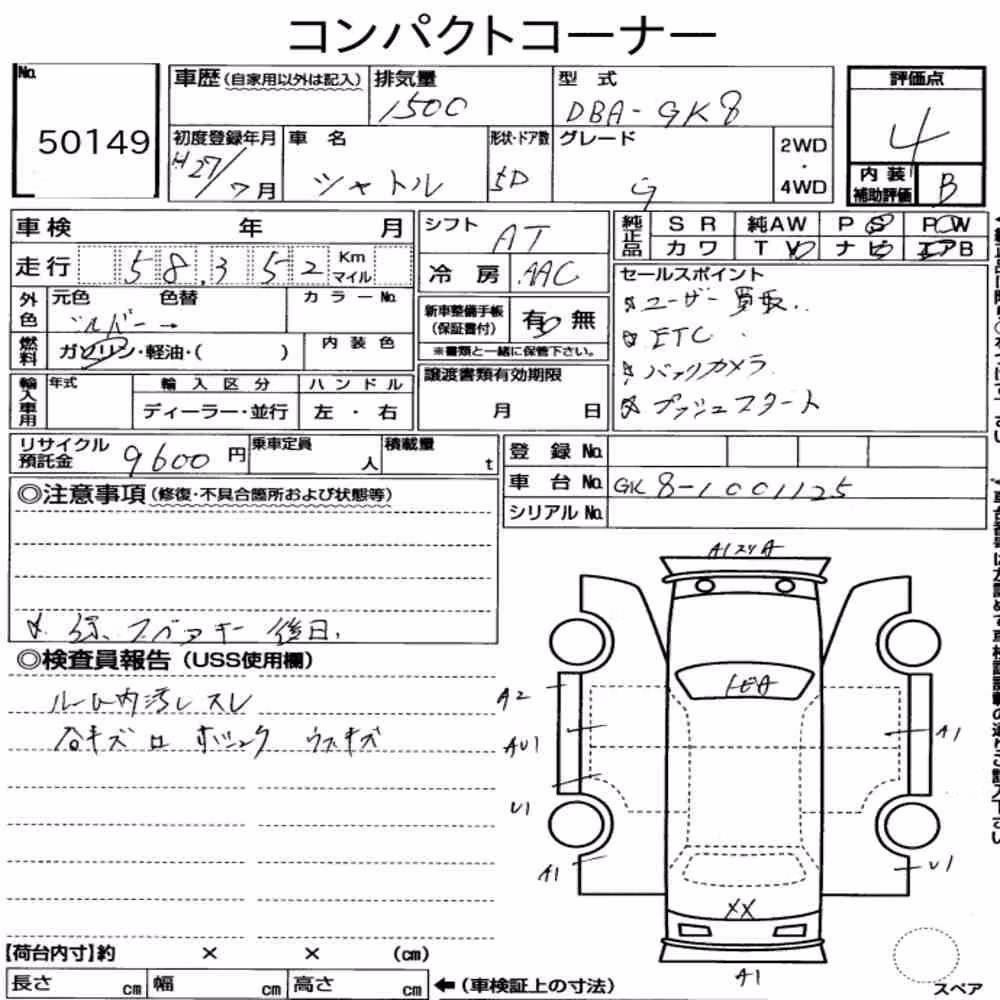 コンパクトコーナー
No. 50149
車歴 (自家用以外は記入)
排気量 1500
型式 DBA-GK8
評価点 4
初度登録年月 H27/7月
車名 シャトル
形状・ドア数 5D
グレード G
2WD・4WD
内装補助評価 B
車検 年 月
シフト AT
純正品 SR 純AW PS PW
カワ TV ナビ エアB
走行 58,352 Km マイル
冷房 AAC
セールスポイント
外色 元色 色替 カラーNo.
シルバー→
新車整備手帳(保証書付) 有・無
※書類と一緒に保管下さい。
☆ユーザー買取.
☆ETC
☆バックカメラ
☆プッシュスタート
燃料 ガソリン・軽油・( )
内装色
輸入車用 年式 輸入区分 ハンドル
ディーラー・並行 左・右
譲渡書類有効期限
月 日
リサイクル預託金 9600円
乗車定員 人
積載量 t
登録No.
車台No. GK8-1001125
シリアルNo.
◎注意事項(修復・不具合箇所および状態等)
スペアキー後日.
◎検査員報告(USS使用欄)
ルーム内汚レスレ
A1
A2
AU1
A1
U1
A1
U1
XX
A1
【荷台内寸】約 × × (cm)
長さ cm 幅 cm 高さ cm ←(車検証上の寸法)
スペア